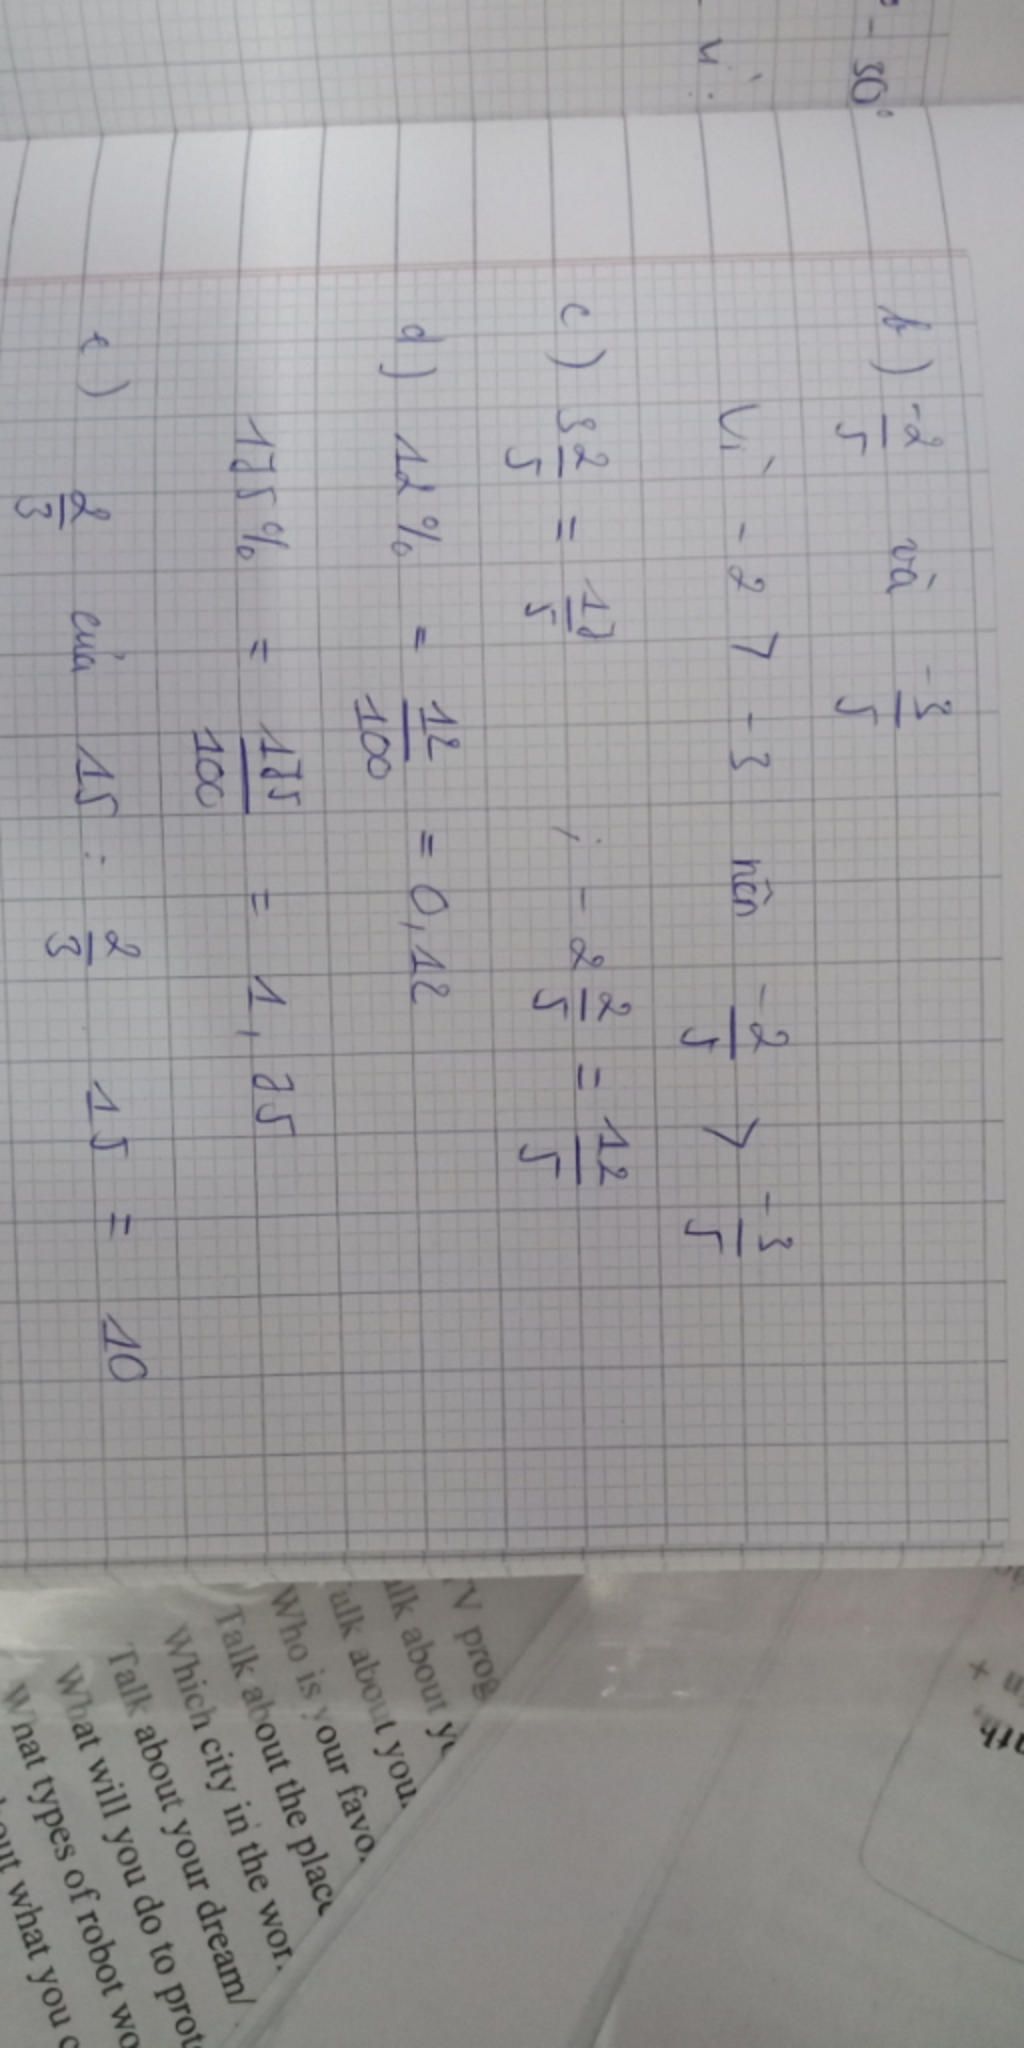 - 30°
b) -2/5 và -3/5
Vì -2 > -3 nên -2/5 > -3/5
c) 3 2/5 = 17/5 ; - 2 2/5 = 12/5
d) 12% = 12/100 = 0,12
175% = 175/100 = 1,75
e) 2/3 của 15 : 2/3 . 15 = 10
TV prog
alk about yo
alk about you
Who is your favo
Talk about the place
Which city in the wor
Talk about your dream/
What will you do to prot
What types of robot wo
out what you c